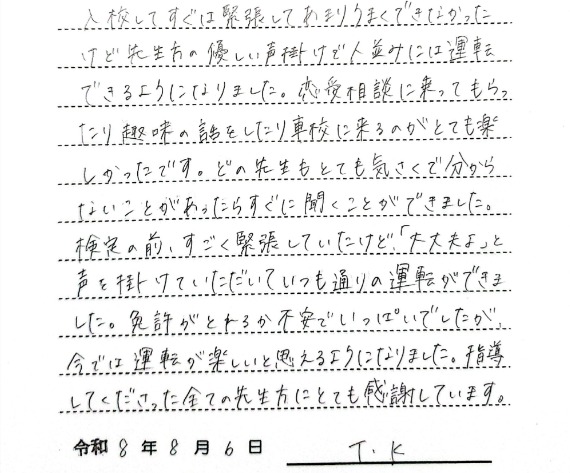 入校してすぐは緊張してあまりうまくできなかった
けど先生方の優しい声掛けで人並みには運転
できるようになりました。恋愛相談に乗ってもらっ
たり趣味の話をしたり車校に来るのがとても楽
しかったです。どの先生もとても気さくで分から
ないことがあったらすぐに聞くことができました。
検定の前、すごく緊張していたけど、「大丈夫よ」と
声を掛けていただいていつも通りの運転ができま
した。免許がとれるか不安でいっぱいでしたが、
今では運転が楽しいと思えるようになりました。指導
してくださった全ての先生方にとても感謝しています。
令和 8 年 8 月 6 日 T.K